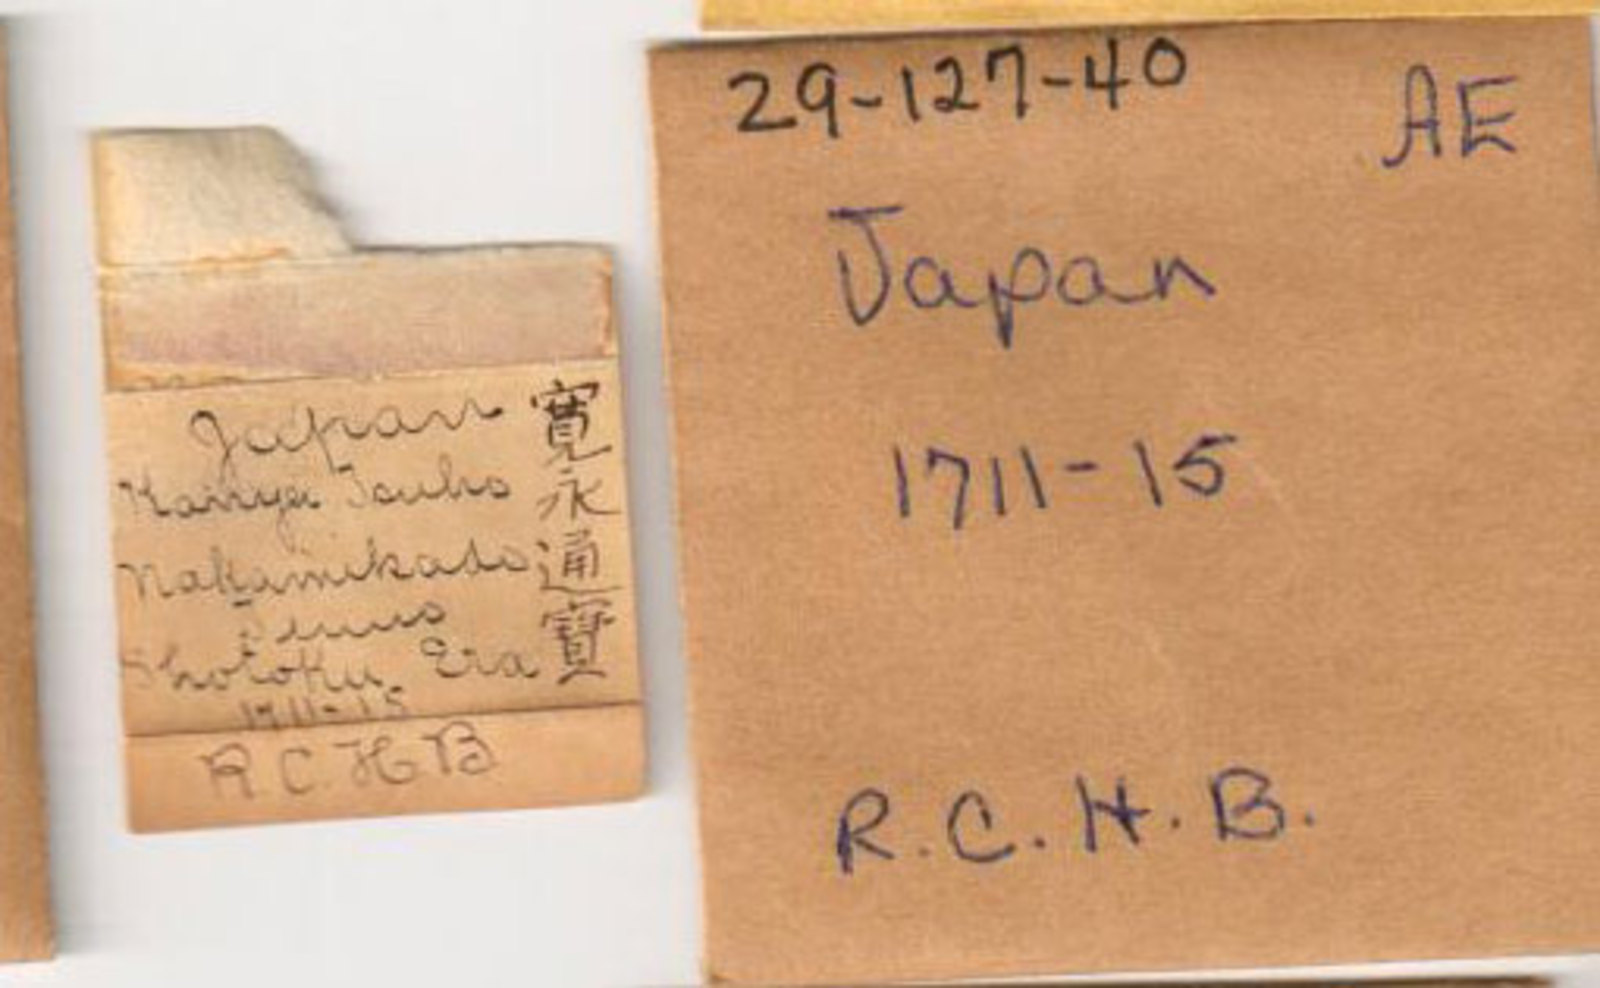 Japan
Kanyei Tsuho
Nakamikado
Tenno
Shotoku Era
1711-15
R C. H B
寛永通寳
29-127-40
AE
Japan
1711-15
R.C.H.B.